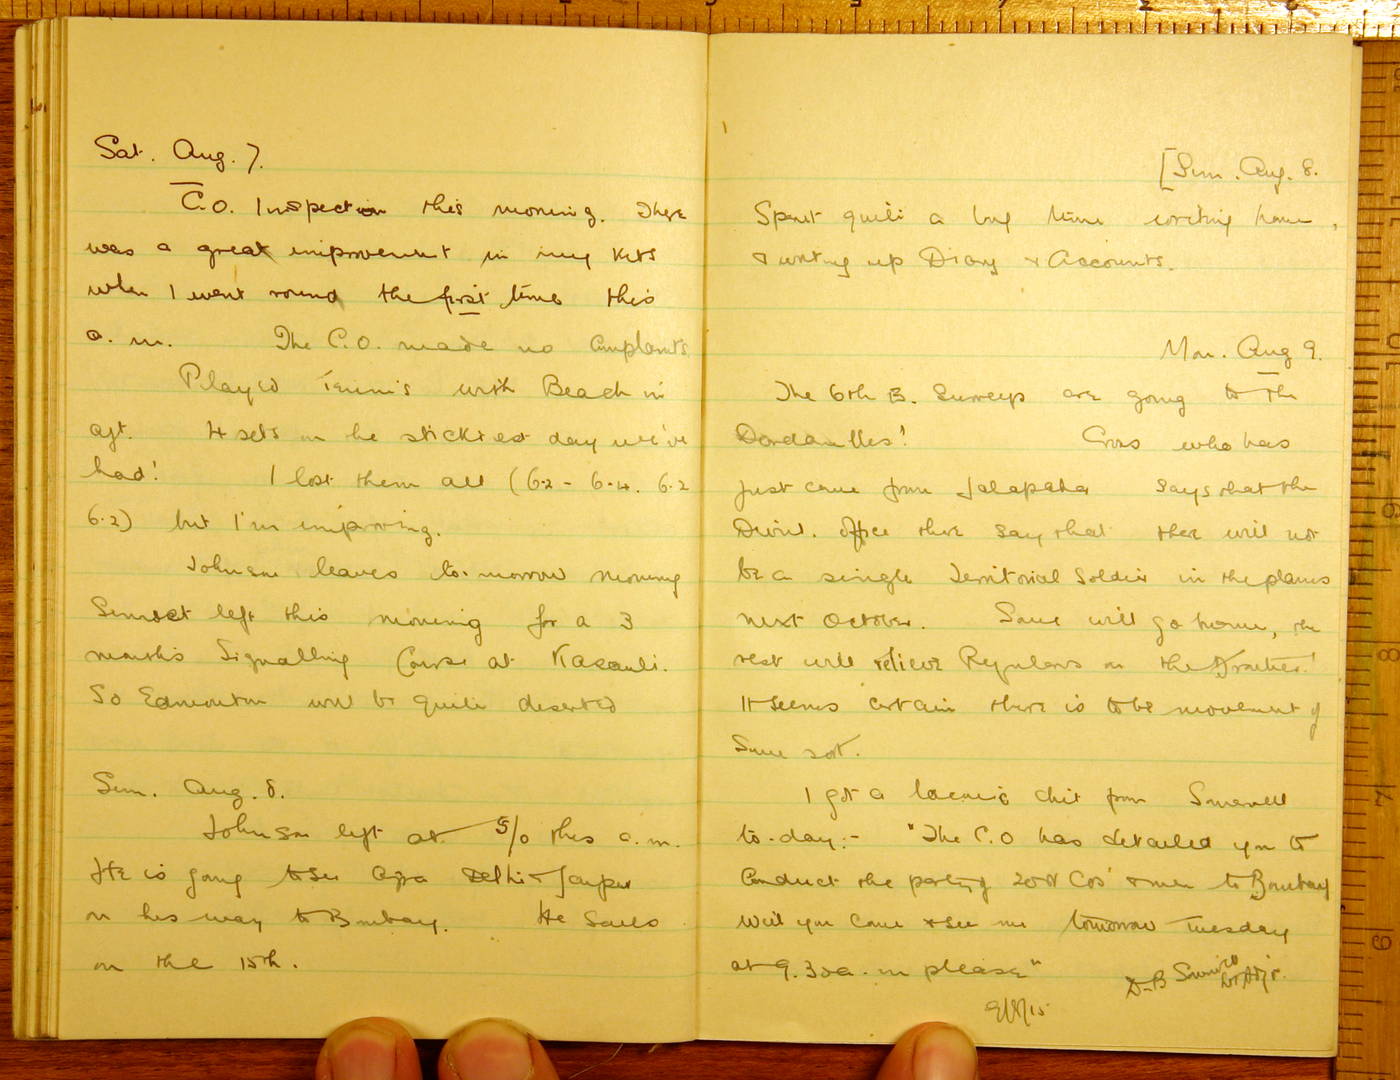 Sat. Aug. 7.
C.O. Inspection this morning. There
was a great improvement in my kits
when I went round the first time this
a.m. The C.O. made no complaints
Played Tennis with Beach in
aft. 4 sets on the stickiest day we've
had! I lost them all (6.2 - 6.4. 6.2
6.2) but I'm improving.
Johnson leaves to-morrow morning
left this morning for a 3
months Signalling Course at Kasauli.
So Edmonton will be quite deserted
Sun. Aug. 8.
Johnson left at 5/0 this a.m.
He is going to see Agra Delhi & Jaipur
on his way to Bombay. He sails
on the 15th.
[Sun. Aug. 8.
Spent quite a long time writing home,
& writing up Diary & Accounts.
Mon. Aug 9.
The 6th E. Surreys are going to the
Dardanelles! Cross who has
just come from Jalapahar says that the
Divnl. Office there say that there will not
be a single Territorial Soldier in the plains
next October. Some will go home, the
rest will relieve Regulars on the frontier!
It seems certain there is to be movement of
some sort.
I got a laconic chit from
to-day:- "The C.O has detailed you to
Conduct the party of 200 & men to Bombay
Will you come & see me tomorrow Tuesday
at 9.30 a.m please"
D-B
Lt Adjt.
9/8/15